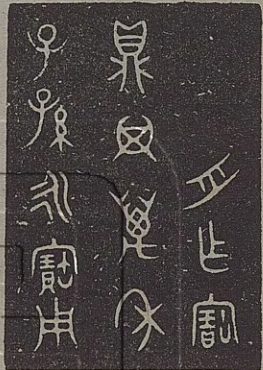 乍寶
鼎其萬年
子孫永寶用